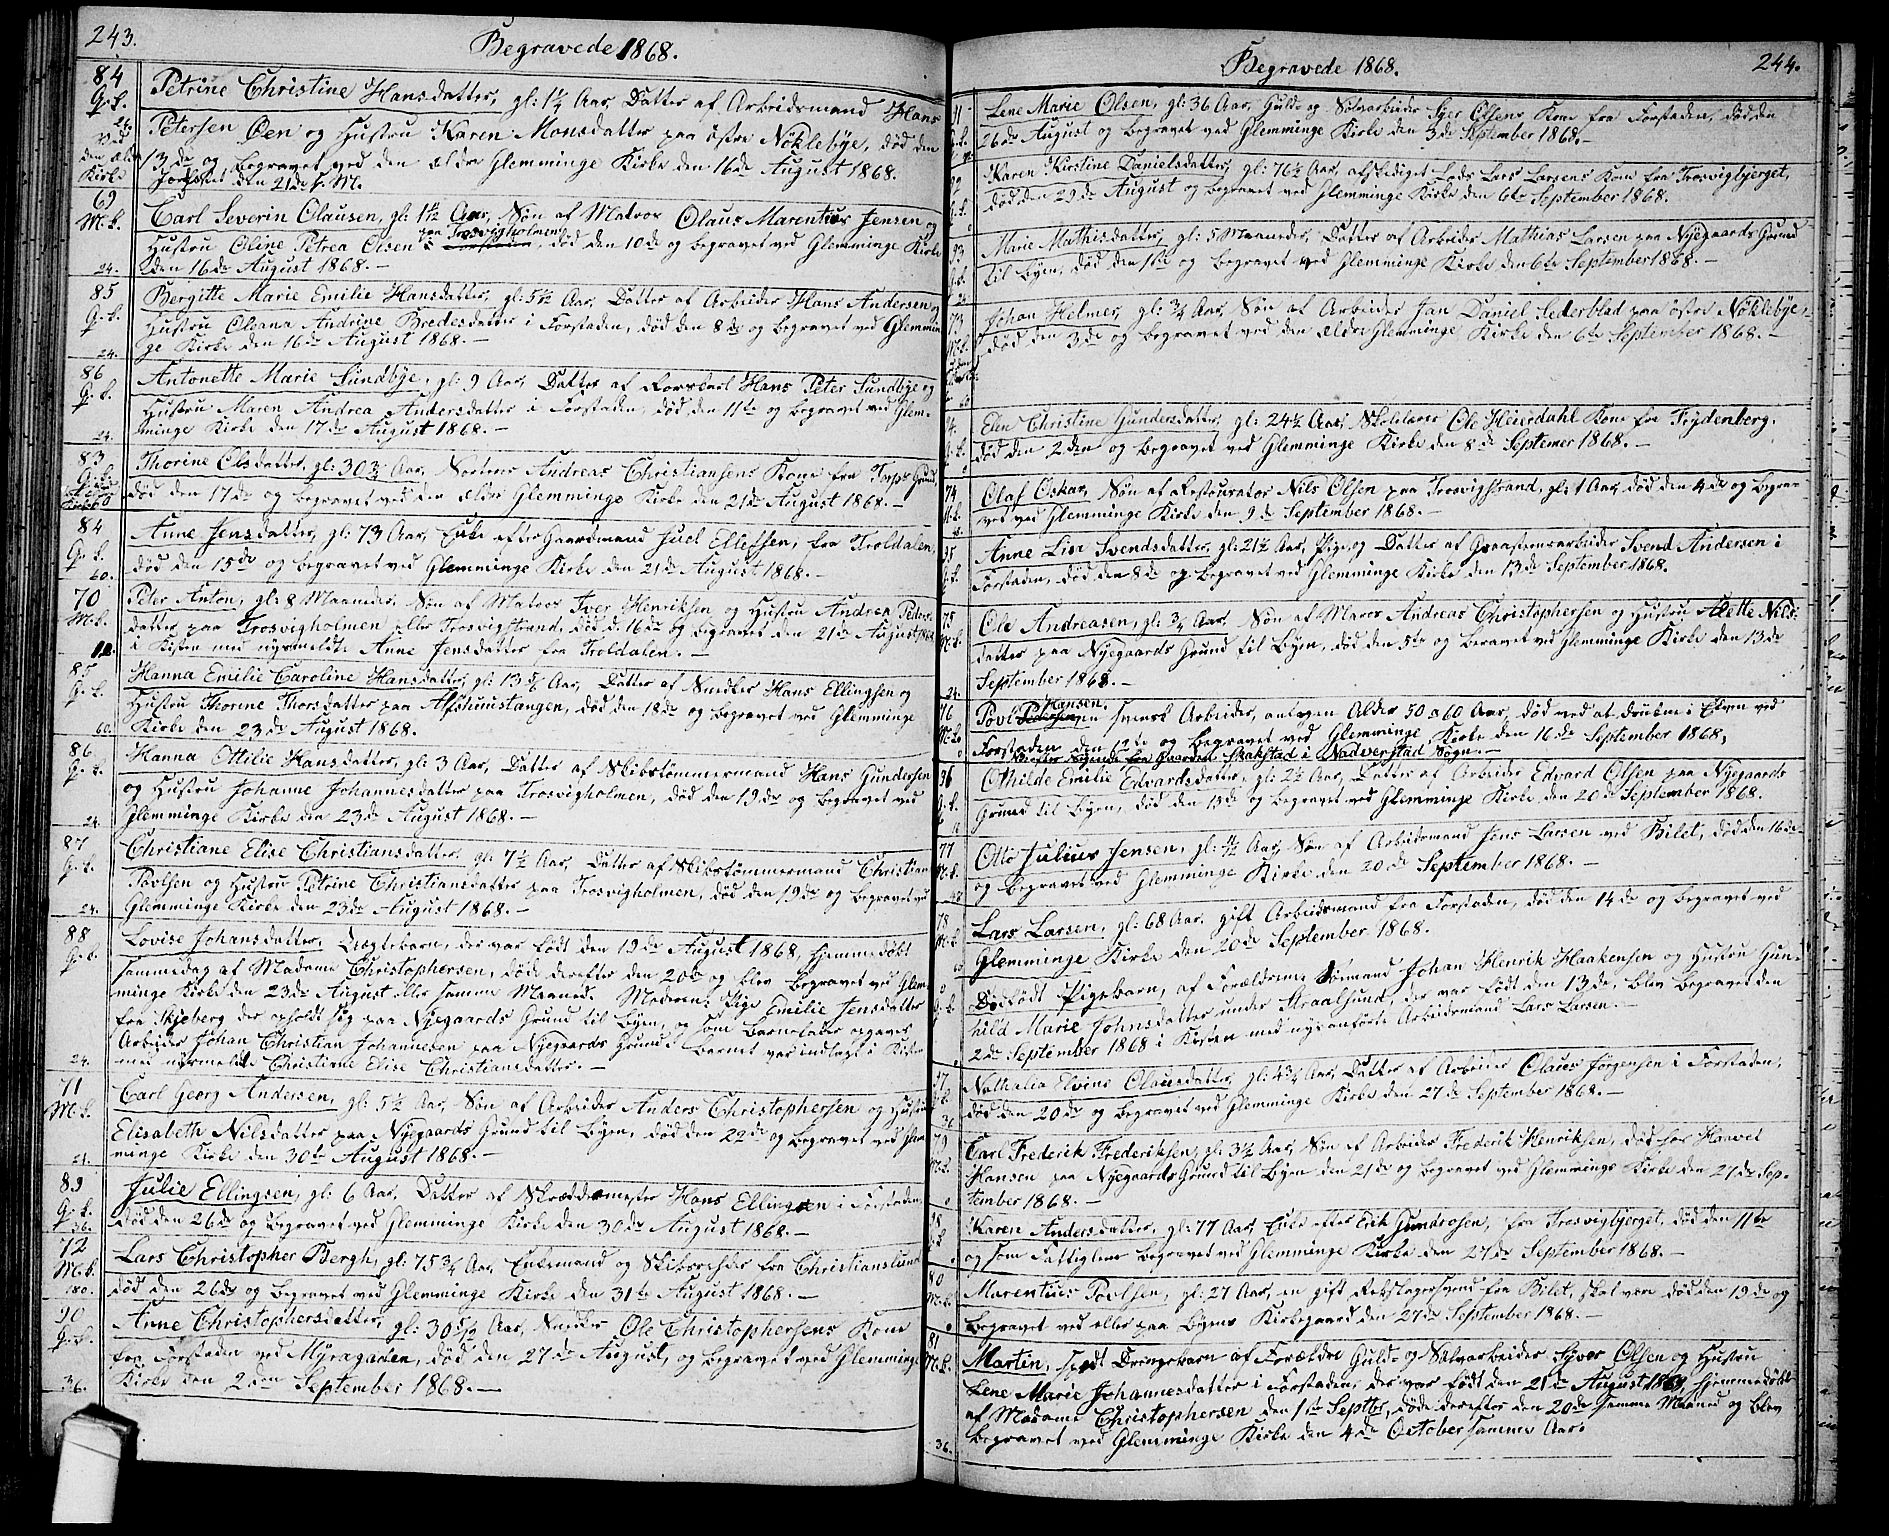 243.
Begravede 1868.
84
Petrine Christine Hansdatter, gl: 1¼ Aar, Datter af Arbeidsmand Hans
G. k.
24.
Petersen Oen og Hustru Karen Monsdatter paa östre Nöklebye, död den
Ved
den ældre
Kirke
13de og begravet ved den ældre Glemminge Kirke den 16de August 1868.
Jordfæstet den 21de s. M.
69
M. k.
Carl Severin Olausen, gl: 1½ Aar, Sön af Matros Olaus Marentius Jensen og
paa Trosvigholmen
Hustru Oline Petrea Olsen, död den 10de og begravet ved Glemminge Kirke
24.
den 16de August 1868. –
85
G. k.
Bergitte Marie Emilie Hansdatter, gl: 5½ Aar, Datter af Arbeider Hans Andersen og
Hustru Oleana Andrine Bredesdatter i Forstaden, död den 8de og begravet ved Glemmin
24.
ge Kirke den 16de August 1868. –
86
G. k.
Antonette Marie Sundbye, gl: 9 Aar, Datter af Rorskarl Hans Peter Sundbye og
Hustru Maren Andrea Andersdatter i Forstaden, död den 11te og begravet ved Glem-
24.
minge Kirke den 17de August 1868. –
83
G. k.
Thorine Olsdatter, gl: 30¾ Aar, Andreas Christiansens Kone fra Torps Grund,
död den 17de og begravet ved den ældre Glemminge Kirke den 21de August 1868. –
84
G. k.
Anne Jensdatter, gl: 73 Aar, Enke efter Gaardmand Juel Ellefsen, fra Troldalen,
60.
död den 15de og begravet ved Glemminge Kirke den 21de August 1868. –
70
M. k.
Peter Anton, gl: 8 Maaneder, Sön af Matros Iver Henriksen og Hustru Andrea Peters-
datter paa Trosvigholmen eller Trosvigstrand, död d: 16de og begravet den 21de August 1868
12.
i Kisten med nysmeldte Anne Jensdatter fra Troldalen. –
85
G. k.
Hanna Emilie Caroline Hansdatter, gl: 13 5/6 Aar, Datter af Snedker Hans Ellingsen og
Hustru Thorine Thorsdatter paa Alfshuustangen, död den 18de og begravet ved Glemminge
60.
Kirke den 23de August 1868.
86
G. k.
Hanna Ottilie Hansdatter, gl: 3 Aar, Datter af Skibstömmermand Hans Gundersen
og Hustru Johanne Johannesdatter paa Trosvigholmen, död den 19de og begravet ved
24.
Glemminge Kirke den 23de August 1868. –
87
G. k.
Christiane Elise Christiansdatter, gl: 7½ Aar, Datter af Skibstömmermand Christian
Povlsen og Hustru Petrine Christiansdatter paa Trosvigholmen, död den 19de og begravet ved
24.
Glemminge Kirke den 23de August 1868. –
88
G. k.
Lovise Johansdatter, Uægtebarn, der var födt den 19de August 1868, hjemmedöbt
sammedag af Madame Christophersen, döde derefter den 20de og blev begravet ved Glem-
minge Kirke den 23de August eller samme Maaned. Moderen: Pige Emilie Jensdatter
fra Skjeberg der opholdt sig paa Nyegaards Grund til Byen, og som Barnefader opgaves
Arbeider Johan Christian Johannesen paa Nyegaards Grund. Barnet var indlagt i Kisten
24.
med nysmeldte Christiane Elise Christiansdatter. –
71
M. k.
Carl Georg Andersen, gl: 5½ Aar, Sön af Arbeider Anders Christophersen og Hustru
Elisabeth Nilsdatter paa Nyegaards Grund til Byen, död den 22de og begravet ved Glem
24.
minge Kirke den 30te August 1868. –
89
G. k.
Julie Ellingsen, gl: 6 Aar, Datter af Skræddermester Hans Ellingsen i Forstaden,
36.
död den 26de og begravet ved Glemminge Kirke den 30de August 1868. –
72
M. k.
Lars Christopher Bergh, gl: 75¾ Aar, Enkemand og Skibsrheder fra Christianslund
180.
död den 26de og begravet ved Glemminge Kirke den 31te August 1868. –
90
G. k.
Anne Christophersdatter, gl: 30 5/12 Aar, Snedker Ole Christophersens Kone
fra Forstaden ved Myragaden, död den 27de August, og begravet ved Glemminge
36.
Kirke den 2den September 1868. –
Begravede 1868.
244.
91
Lene Marie Olsen, gl: 36 Aar, Guld- og Sölvarbeider Syver Olsens Kone fra Forstaden, död den
26de August og begravet ved Glemminge Kirke den 3de September 1868. –
92
Karen Kirstine Danielsdatter, gl: 76½ Aar, afskediget Lods Lars Larsens Kone fra Trosvigbjerget,
död den 29de August og begravet ved Glemminge Kirke den 6te September 1868.
93
Marie Mathisdatter, gl: 5 Maaneder, Datter af Arbeider Mathias Larsen paa Nyegaards Grund
til Byen, död den 1ste og begravet ved Glemminge Kirke den 6te September 1868. –
73
Johan Helmer, gl: ¾ Aar, Sön af Arbeider Jan Daniel Sederblad paa östre Nöklebye,
död den 3de og begravet ved den ældre Glemminge Kirke den 6te September 1868. –
94.
Elen Christine Gundersdatter, gl: 24½ Aar, Skolelærer Ole Heierdahl Kone fra Frydenberg.
död den 2den og begravet ved Glemminge Kirke den 8de Septemer 1868. –
74
Olaf Oskar, Sön af Restourator Nils Olsen paa Trosvigstrand, gl: 1 Aar, död den 4de og begra-
vet ved Glemminge Kirke den 9de September 1868. –
95
Anne Lise Svendsdatter, gl: 21½ Aar, Pige, og Datter af Graastensarbeider Svend Andersen i
Forstaden, död den 8de og begravet ved Glemminge Kirke den 13de September 1868.
75
M. k.
Ole Andreasen, gl: ¾ Aar, Sön af Maror Andreas Christophersen og Hustru Alette Nils-
datter paa Nyegaards Grund til Byen, död den 5te og beravet ved Glemminge Kirke den 13de
24.
September 1868. –
76
M. k.
Hansen,
Povl Pedersen en svensk Arbeider, antagen Alder 50 a 60 Aar, död ved at drukne i Elven ved
Forstaden den 12te og begravet ved Glemminge Kirke den 16de September 1868,
derefter sigende fra Gaarden Skakstad i Nadverstad Sogn. –
96
Othilde Emilie Edvardsdatter, gl: 2½ Aar, Datter af Arbeider Edvard Olsen paa Nyegaards
Grund til Byen, död den 13de og begravet ved Glemminge Kirke den 20de September 1868.
77
M. k.
Otto Julius Jensen, gl: 4½ Aar, Sön af Arbeidsmand Jens Larsen ved Bilet, död den 16de
og begravet ved Glemminge Kirke den 20de September 1868. –
78.
M. k.
Lars Larsen, gl: 68 Aar, gift Arbeidsmand fra Forstaden, död den 14de og begravet ved
Glemminge Kirke den 20de September 1868.
Dödfödt Pigebarn, af Forældrene Sömand Johan Henrik Haakensen og Hustru Gun-
hild Marie Johnsdatter under Straalsund, der var födt den 13de, blev begravet den
2de September 1868 i Kisten med nysanförte Arbeidsmand Lars Larsen. –
97.
Nathalia Elvine Olausdatter, gl: 4¾ Aar, Datter af Arbeider Olaus Jörgensen i Forstaden,
död den 20de og begravet ved Glemminge Kirke den 27de September 1868. –
36
79
M. k.
Carl Frederik Frederiksen, gl: 3½ Aar, Sön af Arbeider Frederik Henriksen, död hos Hanvet
Hansen paa Nyegaards Grund til Byen den 21de og begravet ved Glemminge Kirke den 27de Sep-
tember 1868. –
98.
Karen Andersdatter, gl: 77 Aar, Enke efter Erik Gundrosen, fra Trosvigbjerget, död den 11te
og som Fattiglem begravet ved Glemminge Kirke den 27de September 1868. –
80
M. k.
Marentius Povlsen, gl: 27 Aar, en gift Rebslagersvend fra Bilet, skal være död den 19de og
begravet ved eller paa Byens Kirkegaard den 27de September 1868. –
81
M. k.
Martin, spædt Drengebarn af Forældre Guld- og Sölvarbeider Syver Olsen og Hustru
Lene Marie Johannesdatter i Forstaden, der var födt den 21de August 1868, hjemmedöbt
af Madame Christophersen den 1ste Septbr, döde derefter den 20de samme Maaned og blev
36.
begravet ved Glemminge Kirke den 4de October samme Aar.